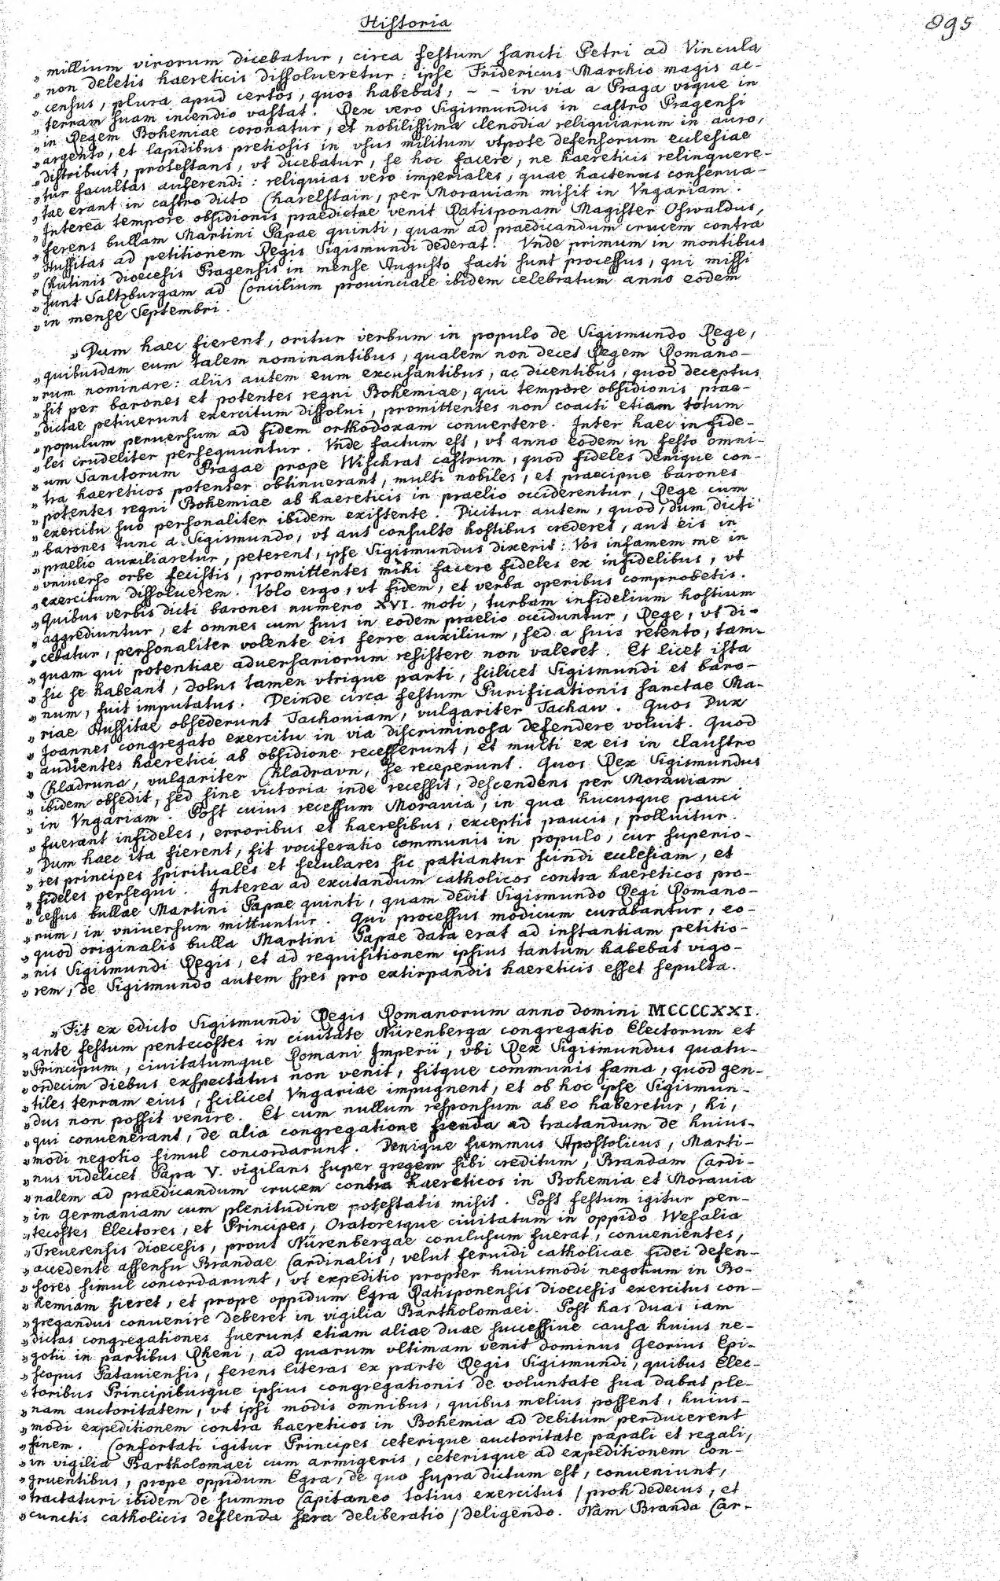 Historia
895
„ millium virorum dicebatur, circa festum sancti Petri ad Vincula
„ non deletis haereticis dissolueretur: ipse Fridericus Marchio magis ac-
„ census, plura apud certos, quos habebat, - - in via a Praga vsque in
„ terram suam incendio vastat. Rex vero Sigismundus in castro Pragensi
„ in Regem Bohemiae coronatur, et nobilissima clenodia reliquiarum in auro,
„ argento, et lapidibus pretiosis in vsus militum vtpote defensorum ecclesiae
„ distribuit, protestans, vt dicebatur, se hoc facere, ne haereticis relinquere-
„ tur facultas auferendi: reliquias vero imperiales, quae hactenus conserua-
„ tae erant in castro dicto Charelstain, per Morauiam misit in Vngariam.
„ Interea tempore obsidionis praedictae venit Ratisponam Magister Oswaldus,
„ ferens bullam Martini Papae quinti, quam ad praedicandum crucem contra
„ Hussitas ad petitionem Regis Sigismundi dederat. Vnde primum in montibus
„ Chutinis dioecesis Pragensis in mense Augusto facti sunt processus, qui missi
„ sunt Saltzburgam ad Concilium prouinciale ibidem celebratum anno eodem
„ in mense Septembri.
„ Dum haec fierent, oritur verbum in populo de Sigismundo Rege,
„ quibusdam eum talem nominantibus, qualem non decet Regem Romano-
„ rum nominare: aliis autem eum excusantibus, ac dicentibus, quod deceptus
„ sit per barones et potentes regni Bohemiae, qui tempore obsidionis prae-
„ dictae petiuerunt exercitum dissolui, promittentes non coacti etiam totum
„ populum peruersum ad fidem orthodoxam conuertere. Inter haec infide-
„ les crudeliter persequuntur. Vnde factum est, vt anno eodem in festo omni-
„ um Sanctorum Pragae prope Wischrat castrum, quod fideles denique con-
„ tra haereticos potenter obtinuerant, multi nobiles, et praecipue barones
„ potentes regni Bohemiae ab haereticis in praelio occiderentur, Rege cum
„ exercitu suo personaliter ibidem existente. Dicitur autem, quod, dum dicti
„ barones tunc a Sigismundo, vt aut consulto hostibus crederet, aut eis in
„ praelio auxiliaretur, peterent, ipse Sigismundus dixerit: Vos infamem me in
„ vniuerso orbe fecistis, promittentes mihi facere fideles ex infidelibus, vt
„ exercitum dissoluerem. Volo ergo, vt fidem, et verba operibus comprobetis.
„ quibus verbis dicti barones numero XVI. moti, turbam infidelium hostium
„ aggrediuntur, et omnes cum suis in eodem praelio occiduntur, Rege, vt di-
„ cebatur, personaliter volente eis ferre auxilium, sed a suis retento, tam-
„ quam qui potentiae aduersariorum resistere non valeret. Et licet ista
„ sic se habeant, dolus tamen vtrique parti, scilicet Sigismundi et baro-
„ num, fuit imputatus. Deinde circa festum Purificationis sanctae Ma-
„ riae Hussitae obsederunt Tachoniam, vulgariter Tachaw. Quos Dux
„ Joannes congregato exercitu in via discriminosa defendere voluit. Quod
„ audientes haeretici ab obsidione recesserunt, et multi ex eis in claustro
„ Chladruna, vulgariter Chladravn, se receperunt. Quos Rex Sigismundus
„ ibidem obsedit, sed sine victoria inde recessit, descendens per Morauiam
„ in Vngariam. Post cuius recessum Morauia, in qua hucusque pauci
„ fuerant infideles, erroribus et haeresibus, exceptis paucis, polluitur.
„ Dum haec ita fierent, fit vociferatio communis in populo, cur superio-
„ res principes spirituales et seculares sic patiantur scindi ecclesiam, et
„ fideles persequi. Interea ad excitandum catholicos contra haereticos pro-
„ cessus bullae Martini Papae quinti, quam dedit Sigismundo Regi Romano-
„ rum, in vniuersum mittuntur. Qui processus modicum curabantur, eo-
„ quod originalis bulla Martini Papae data erat ad instantiam petitio-
„ nis Sigismundi Regis, et ad requisitionem ipsius tantum habebat vigo-
„ rem; de Sigismundo autem spes pro extirpandis haereticis esset sepulta.
„ Fit ex edicto Sigismundi Regis Romanorum anno domini MCCCCXXI.
„ ante festum pentecostes in ciuitate Nürenberga congregatio Electorum et
„ Principum, ciuitatumque Romani Imperii, vbi Rex Sigismundus quatu-
„ ordecim diebus exspectatus non venit, fitque communis fama, quod gen-
„ tiles terram eius, scilicet Vngariae impugnent, et ob hoc ipse Sigismun-
„ dus non possit venire. Et cum nullum responsum ab eo haberetur, hi,
„ qui conuenerant, de alia congregatione fienda ad tractandum de huius-
„ modi negotio simul concordarunt. Denique summus Apostolicus, Marti-
„ nus videlicet Papa V. vigilans super gregem sibi creditum, Brandam Cardi-
„ nalem ad praedicandum crucem contra haereticos in Bohemia et Morauia
„ in Germaniam cum plenitudine potestatis misit. Post festum igitur pen-
„ tecostes Electores, et Principes, Oratoresque ciuitatum in oppido Wesalia
„ Treuerensis dioecesis, prout Nürenbergae conclusum fuerat, conuenientes,
„ accedente assensu Brandae Cardinalis, velut feruidi catholicae fidei defen-
„ sores simul concordarunt, vt expeditio propter huiusmodi negotium in Bo-
„ hemiam fieret, et prope oppidum Egra Ratisponensis dioecesis exercitus con-
„ gregandus conuenire deberet in vigilia Bartholomaei. Post has duas iam
„ dictas congregationes fuerunt etiam aliae duae successiue causa huius ne-
„ gotii in partibus Rheni, ad quarum vltimam venit dominus Georius Epi-
„ scopus Patauiensis, ferens literas ex parte Regis Sigismundi, quibus Elec-
„ toribus Principibusque ipsius congregationis de voluntate sua dabat ple-
„ nam auctoritatem, vt ipsi modis omnibus, quibus melius possent, huius-
„ modi expeditionem contra haereticos in Bohemia ad debitum perducerent
„ finem. Confortati igitur Principes ceterique auctoritate papali et regali,
„ in vigilia Bartholomaei cum armigeris, ceterisque ad expeditionem con-
„ gruentibus, prope oppidum Egra, de quo supra dictum est, conueniunt,
„ tractaturi ibidem de summo Capitaneo totius exercitus / proh dedecus, et
„ cunctis catholicis deflenda sera deliberatio / deligendo. Nam Branda Car-